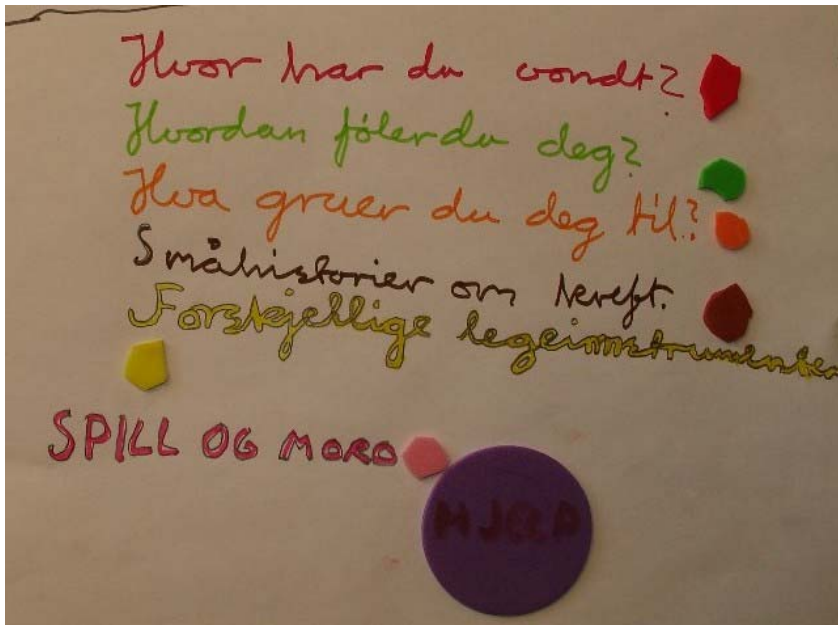 Hvor har du vondt?
Hvordan føler du deg?
Hva gruer du deg til?
Småhistorier om kreft.
Forskjellige legeinnstrumenter
SPILL OG MORO
HJELP